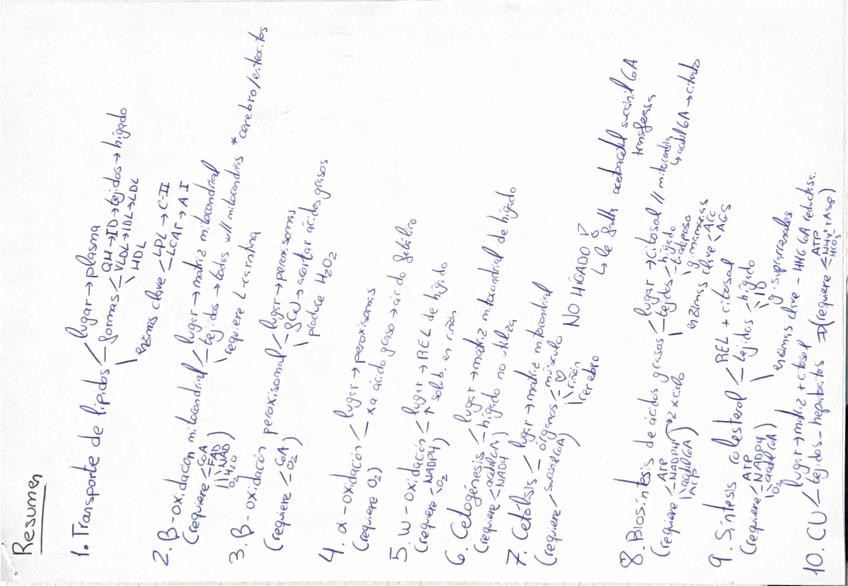 Resumen
1. Transporte de lípidos
lugar → plasma
formas
QM → ID → tejidos → hígado
VLDL → IDL → LDL
HDL
enzimas clave
LPL → C-II
LCAT → A I
2. β-oxidación mitocondrial
(requiere
CoA
FAD
NAD
H2O
O2
)
lugar → matriz mitocondrial
tejidos → todos w/ mitocondrias * cerebro/eritrocitos
requiere L-carnitina
3. β-oxidación peroxisomal
(requiere
CoA
O2
)
lugar → peroxisomas
→ acortar ácidos grasos
produce H2O2
4. α-oxidación
(requiere O2)
lugar → peroxisomas
ácido graso → ácido
5. W-oxidación
(requiere
NADPH
O2
)
lugar → REL de hígado
↑ solub. en riñón
6. Cetogénesis
(requiere
acetil CoA
NADH
)
lugar → matriz mitocondrial de hígado
hígado no utiliza
7. Cetólisis
(requiere succinil CoA)
lugar → matriz mitocondrial
órganos
músculo
♡
riñón
cerebro
NO HÍGADO
↳ le falta acetoacetil succinil CoA
transferasa
8. Biosíntesis de ácidos grasos
(requiere
ATP
NADPH → 2 x ciclo
acetil CoA
)
lugar → citosol // mitocondria
↳ acetil CoA → citrato
tejidos
hígado
t. adiposo
y mamarias
enzimas clave
ACC
AGS
9. Síntesis colesterol
(requiere
ATP
NADPH
acetil CoA
O2
)
REL + citosol
tejidos
hígado
ID
g. suprarrenales
enzima clave - HMG CoA reductasa
10. CU
lugar → matriz + citosol
tejidos - hepatocitos
→ (requiere
ATP
NH4+ + Asp
HCO3
)